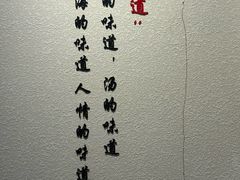 道：
的味道，汤的味道
的味道人情的味道